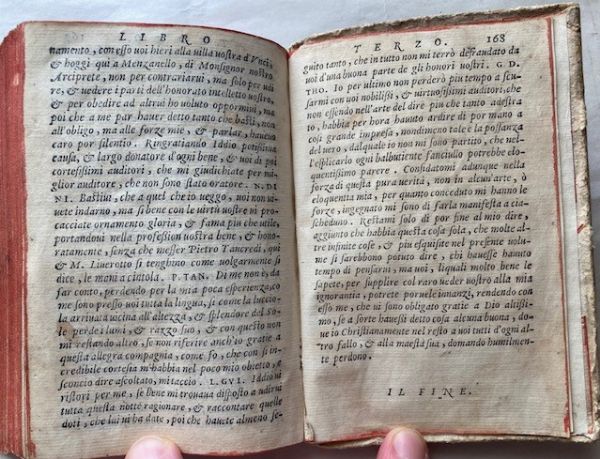 LIBRO
namento, con esso voi hieri alla villa vostra d'Vnci,
& hoggi qui a Menzanello, di Monsignor nostro
Arciprete, non per contrariarui, ma solo per udi
re, & uedere i parti dell'honorato intelletto nostro,
& per obedire ad altrui ho uoluto oppormi, ma
poi che a me par hauer detto tanto che basti, non
all'obligo, ma alle forze mie, & parlar, hauendo
caro por silentio. Ringratiando Iddio potissima
causa, & largo donatore d'ogni bene, & uoi di poi
cortesissimi auditori, che mi giudichiate per mi-
glior auditore, che non sono stato oratore. N. DI
NI. Bastiui, che a quel che io ueggo, uoi non ui
uete indarno, ma sì bene con le uirtù uostre ui pro-
cacciate ornamento gloria, & fama piu che utile,
portandoui nella profession uostra bene, & hono-
ratamente, senza che messer Pietro Tancredi, qui
& M. Liuerotto si tenghino come uolgarmente si
dice, le mani a cintola. P. TAN. Di me non è, da
far conto, perdendo per la mia poca esperienza, co
me sono presso uoi tutta la lingua, sì come la luccio-
la arriuata uicina all'altezza, & splendore del So-
le perde i lumi, & razzo suo, & con questo non
mi restando altro, se non riferire anch'io gratie a
questa allegra compagnia, come fo, che con sì in-
credibile cortesia m'habbia nel poco mio obietto, e
sconcio dire ascoltato, mi taccio. L. GVI. Iddio ui
ristori per me, se bene mi trouaua disposto a udirui
tutta questa notte ragionare, & raccontare quelle
doti, che lui ui ha date, poi che hauete almeno se-
TERZO. 168
guito tanto, che in tutto non mi terrò defraudato da
uoi d'una buona parte de gli honori uostri. G. D.
THO. Io per ultimo non perderò piu tempo a scu-
sarmi con uoi nobilissi, & uirtuosissimi auditori, che
non essendo nell'arte del dire piu che tanto adestra
to, habbia per hora hauuto ardire di por mano a
così grande impresa, nondimeno tale è la possanza
del uero, dalquale io non mi sono partito, che nel-
l'esplicarlo ogni balbutiente fanciullo potrebbe elo-
quentissimo parere. Confidatomi adunque nella
forza di questa pura uerità, non in alcun'arte, ò
eloquentia mia, per quanto conceduto mi hanno le
forze, ingegnato mi sono di farla manifesta a cia-
scheduno. Restami solo di por fine al mio dire,
aggiunto che habbia questa cosa sola, che molte al-
tre infinite cose, & piu esquisite nel presente uolu-
me si sarebbono potute dire, chi hauesse hauuto
tempo di pensarui, ma uoi, liquali molto bene le
sapete, per supplire col raro ueder uostro alla mia
ignorantia, potrete poruele innanzi, rendendo con
esso me, che ui sono obligato gratie a Dio altissi-
mo, se a sorte hauessi detto cosa alcuna buona, do-
ue io Christianamente nel resto a uoi tutti d'ogni al-
tro fallo, & alla maestà sua, domando humilmen-
te perdono.
IL FINE.